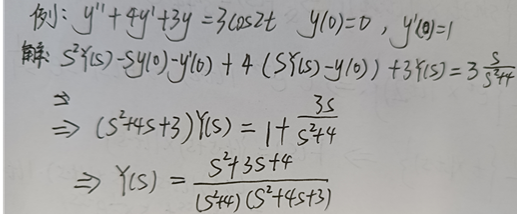 例: y''+4y'+3y=3cos2t y(0)=0, y'(0)=1
解: S²Y(s)-Sy(0)-y'(0)+4(SY(s)-y(0))+3Y(s)=3 s/(s²+4)
⇒
⇒ (s²+4s+3)Y(s)=1+ 3s/(s²+4)
⇒ Y(s)= (s²+3s+4)/((s²+4)(s²+4s+3))